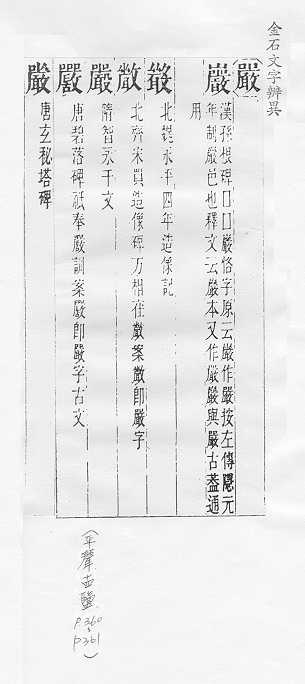 金石文字辨異
嚴
巖 漢孫根碑口口嚴恪字原云嚴作巖按左傳隱元
年制巖邑也釋文云巖本又作嚴巖與嚴古葢通
用
北魏永平四年造像記
北齊宋買造像碑万相在敳案敳即嚴字
嚴 隋智永千文
嚴 唐碧落碑祇奉嚴訓案嚴即嚴字古文
嚴 唐玄秘塔碑
(平聲 壹 鹽 p.360
p361)